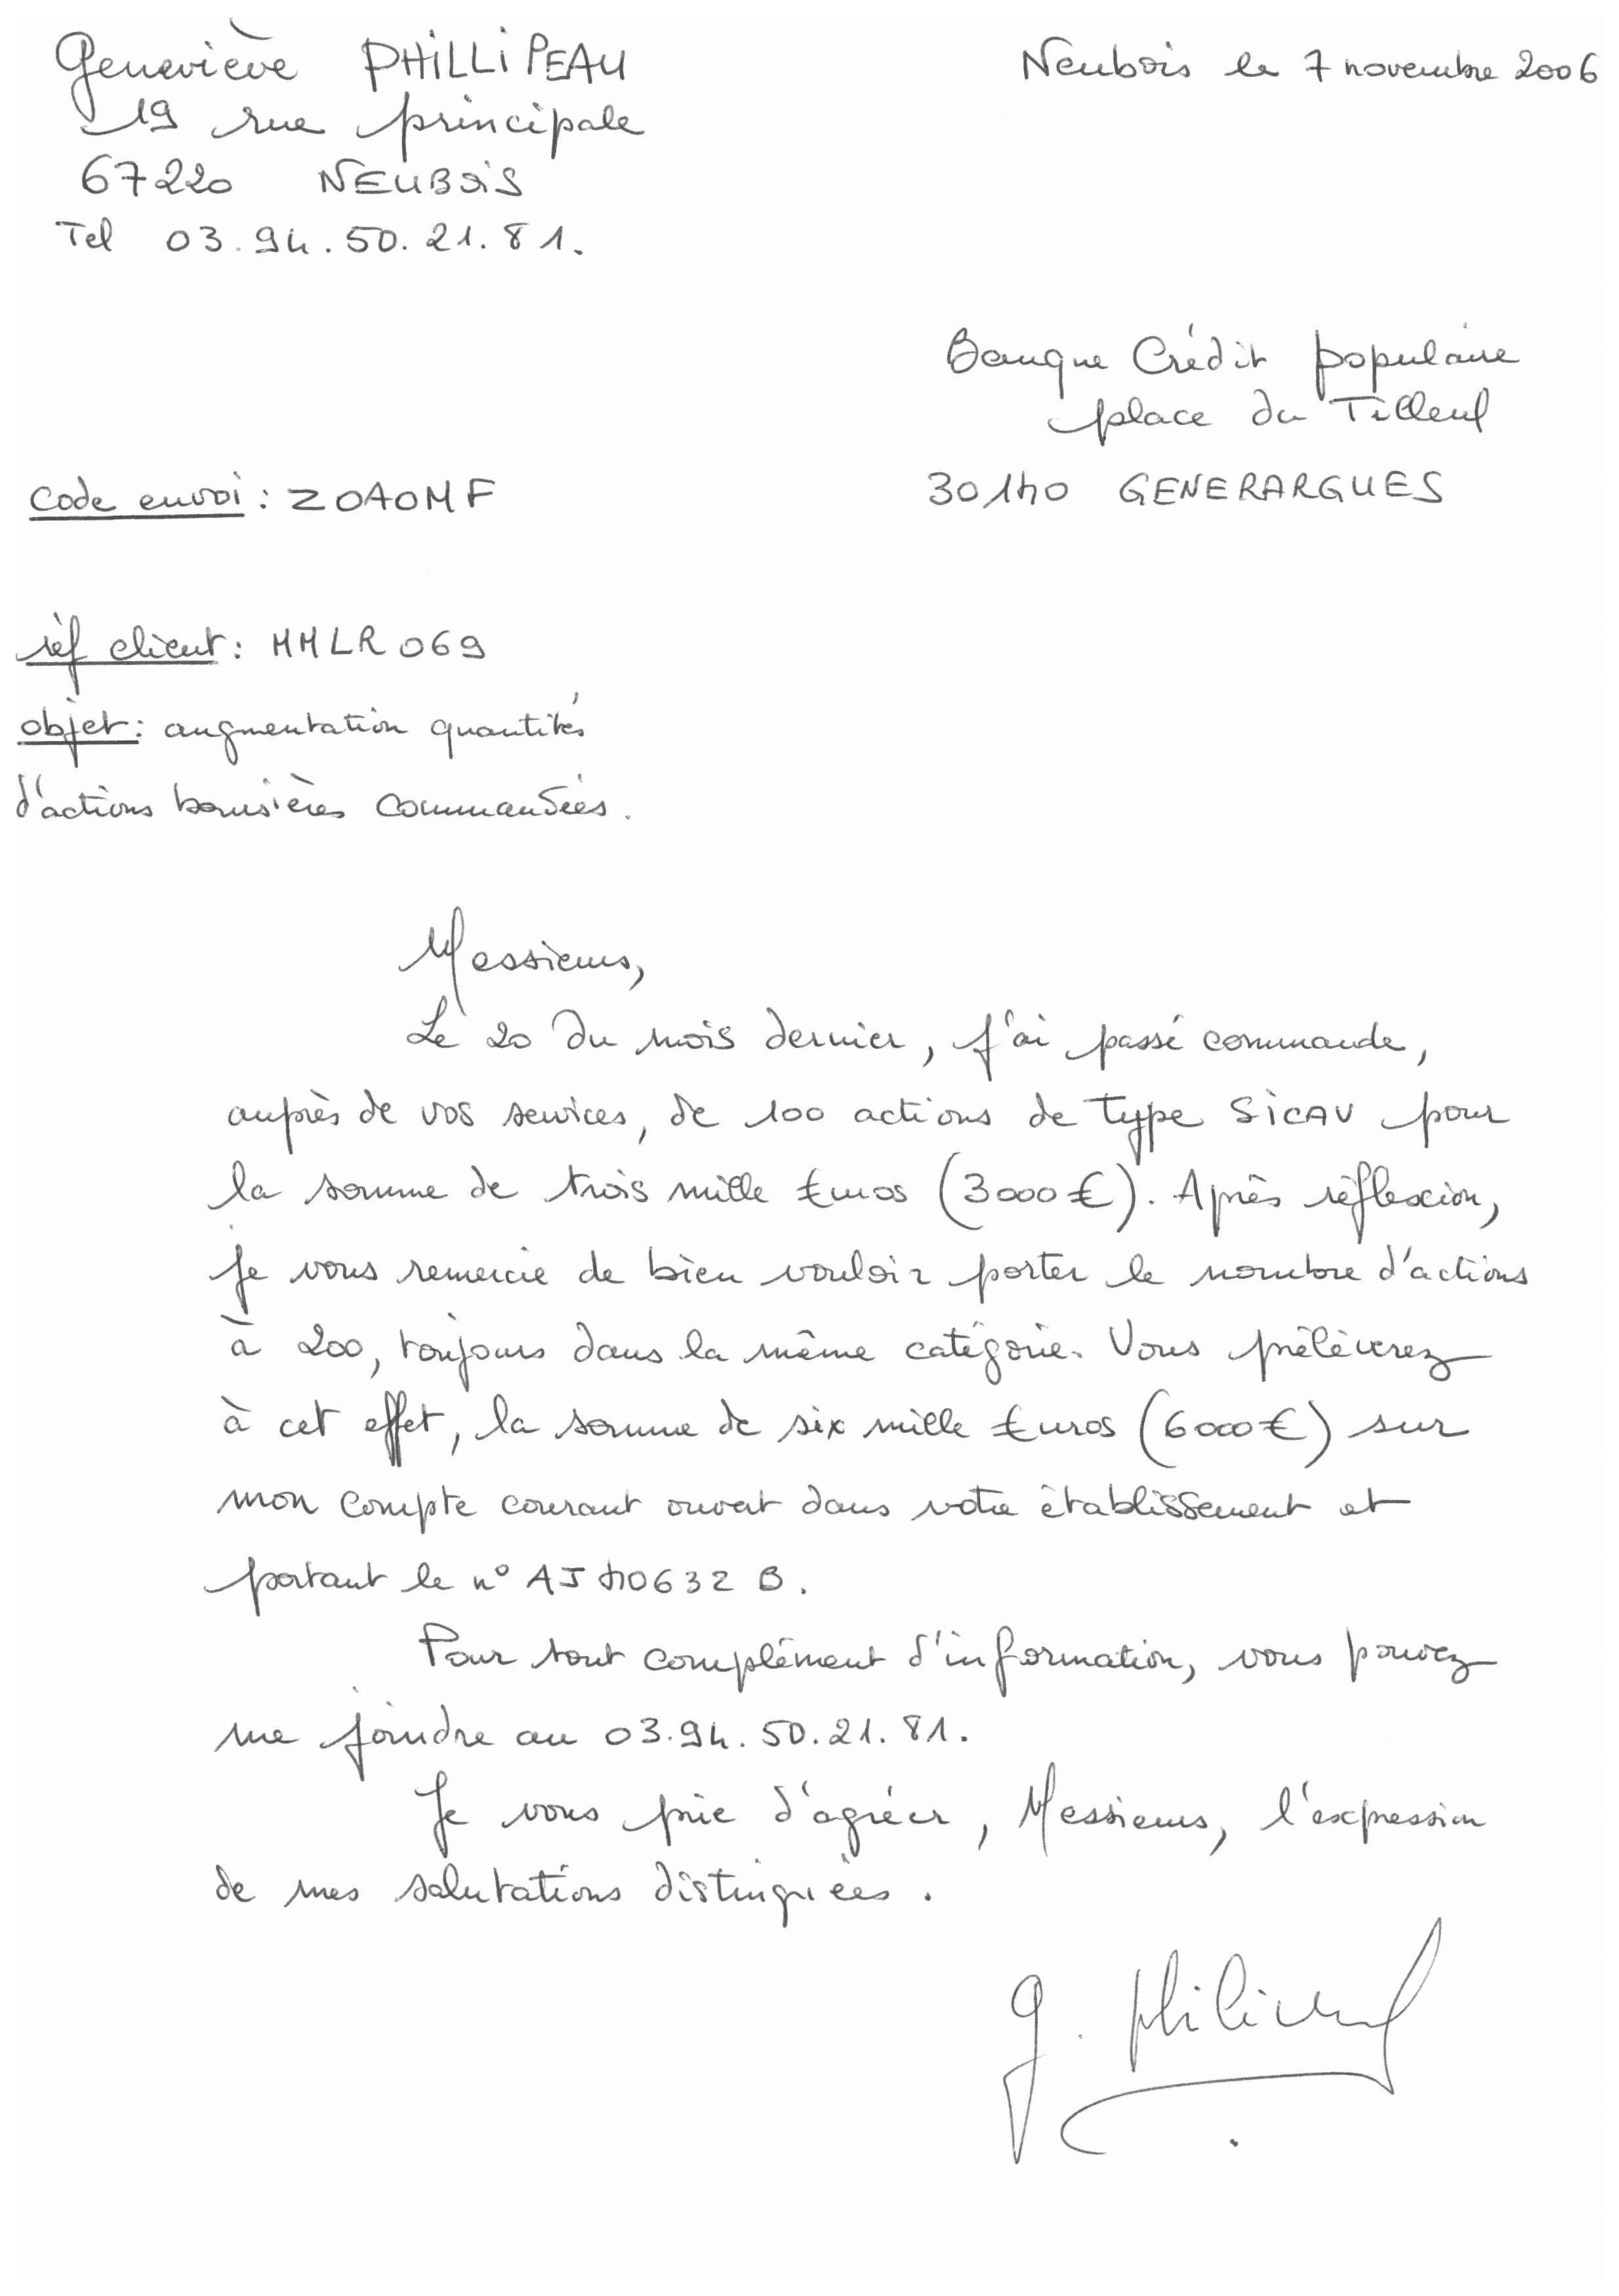 Geneviève PHILLIPEAU
Neubois le 7 novembre 2006
19 rue principale
67220 NEUBOIS
Tel 03.94.50.21.81.
Banque Crédit populaire
place du Tilleul
30140 GENERARGUES
Code envoi : ZOAOMF
réf client : MMLR069
objet : augmentation quantités
d'actions boursières commandées.
Messieurs,
Le 20 du mois dernier, j'ai passé commande,
auprès de vos services, de 100 actions de type SICAV pour
la somme de trois mille Euros (3000€). Après réflexion,
je vous remercie de bien vouloir porter le nombre d'actions
à 200, toujours dans la même catégorie. Vous prélèverez
à cet effet, la somme de six mille Euros (6000€) sur
mon compte courant ouvert dans votre établissement et
portant le n°
Pour tout complément d'information, vous pouvez
me joindre au 03.94.50.21.81.
Je vous prie d'agréer, Messieurs, l'expression
de mes salutations distinguées.